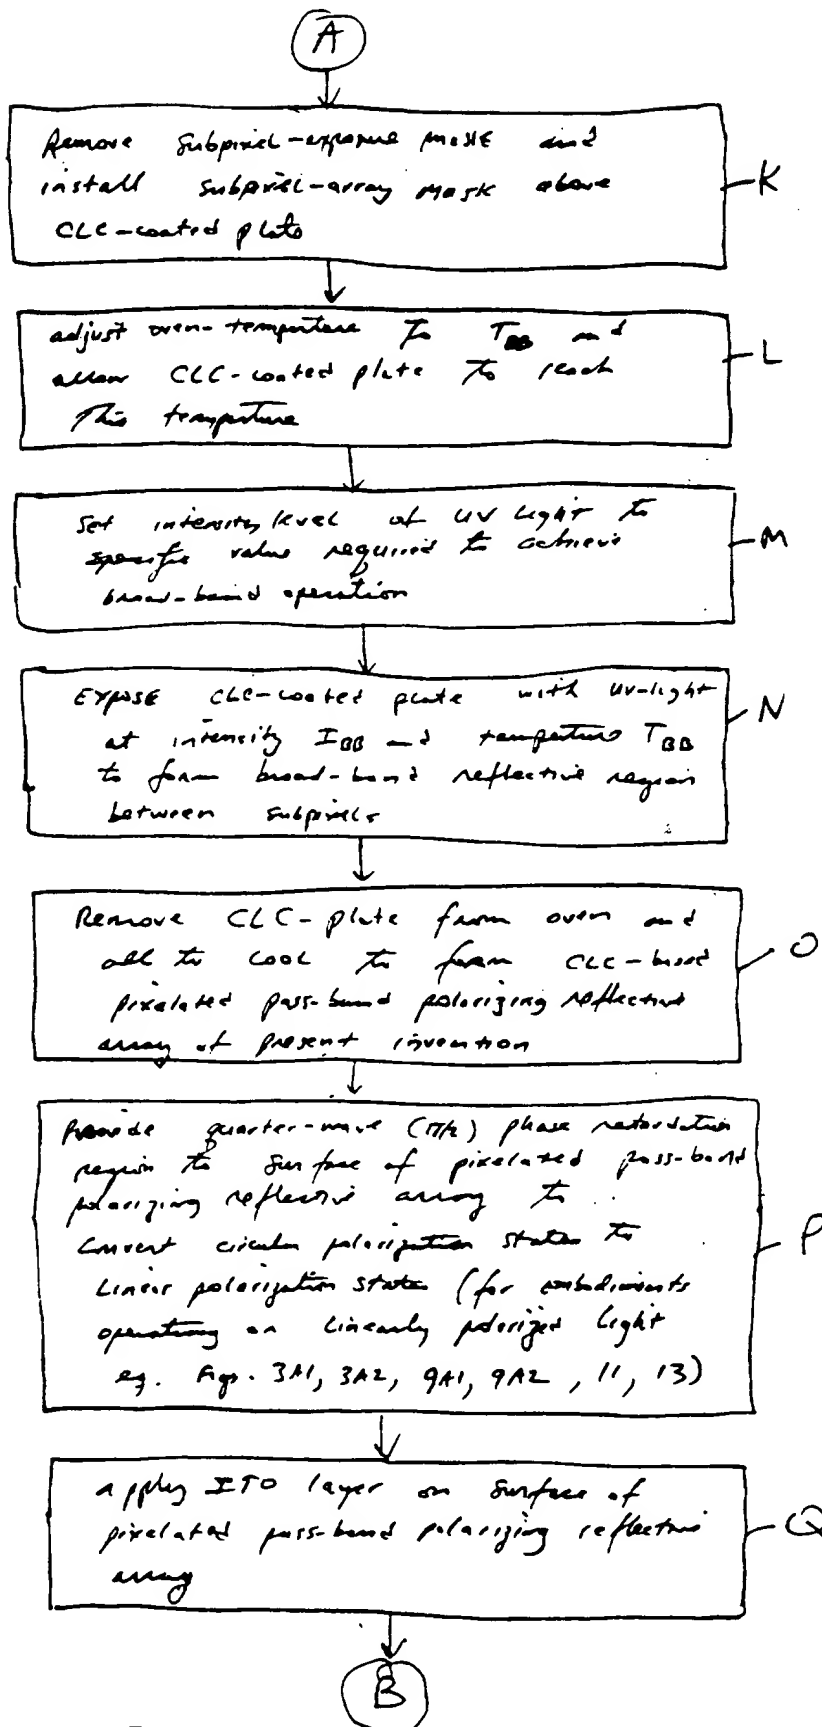 A
Remove subpixel-exposure mask and
install subpixel-array mask above
CLC-coated plate
K
adjust oven-temperture to TBB and
allow CLC-coated plate to reach
this temperture
L
Set intensity level of UV light to
specific value required to achieve
broad-band operation
M
Expose CLC-coated plate with UV-light
at intensity IBB and temperture TBB
to form broad-band reflective region
between subpixels
N
Remove CLC-plate from oven and
all to cool to form CLC-based
pixelated pass-band polarizing reflective
array of present invention
O
Provide quarter-wave (π/2) phase retardation
region to surface of pixelated pass-band
polarizing reflective array to
convert circular polarization states to
Linear polarization states (for embodiments
operating on linearly polarized light
eg. Figs. 3A1, 3A2, 9A1, 9A2, 11, 13)
P
apply ITO layer on surface of
pixelated pass-band polarizing reflective
array
Q
B